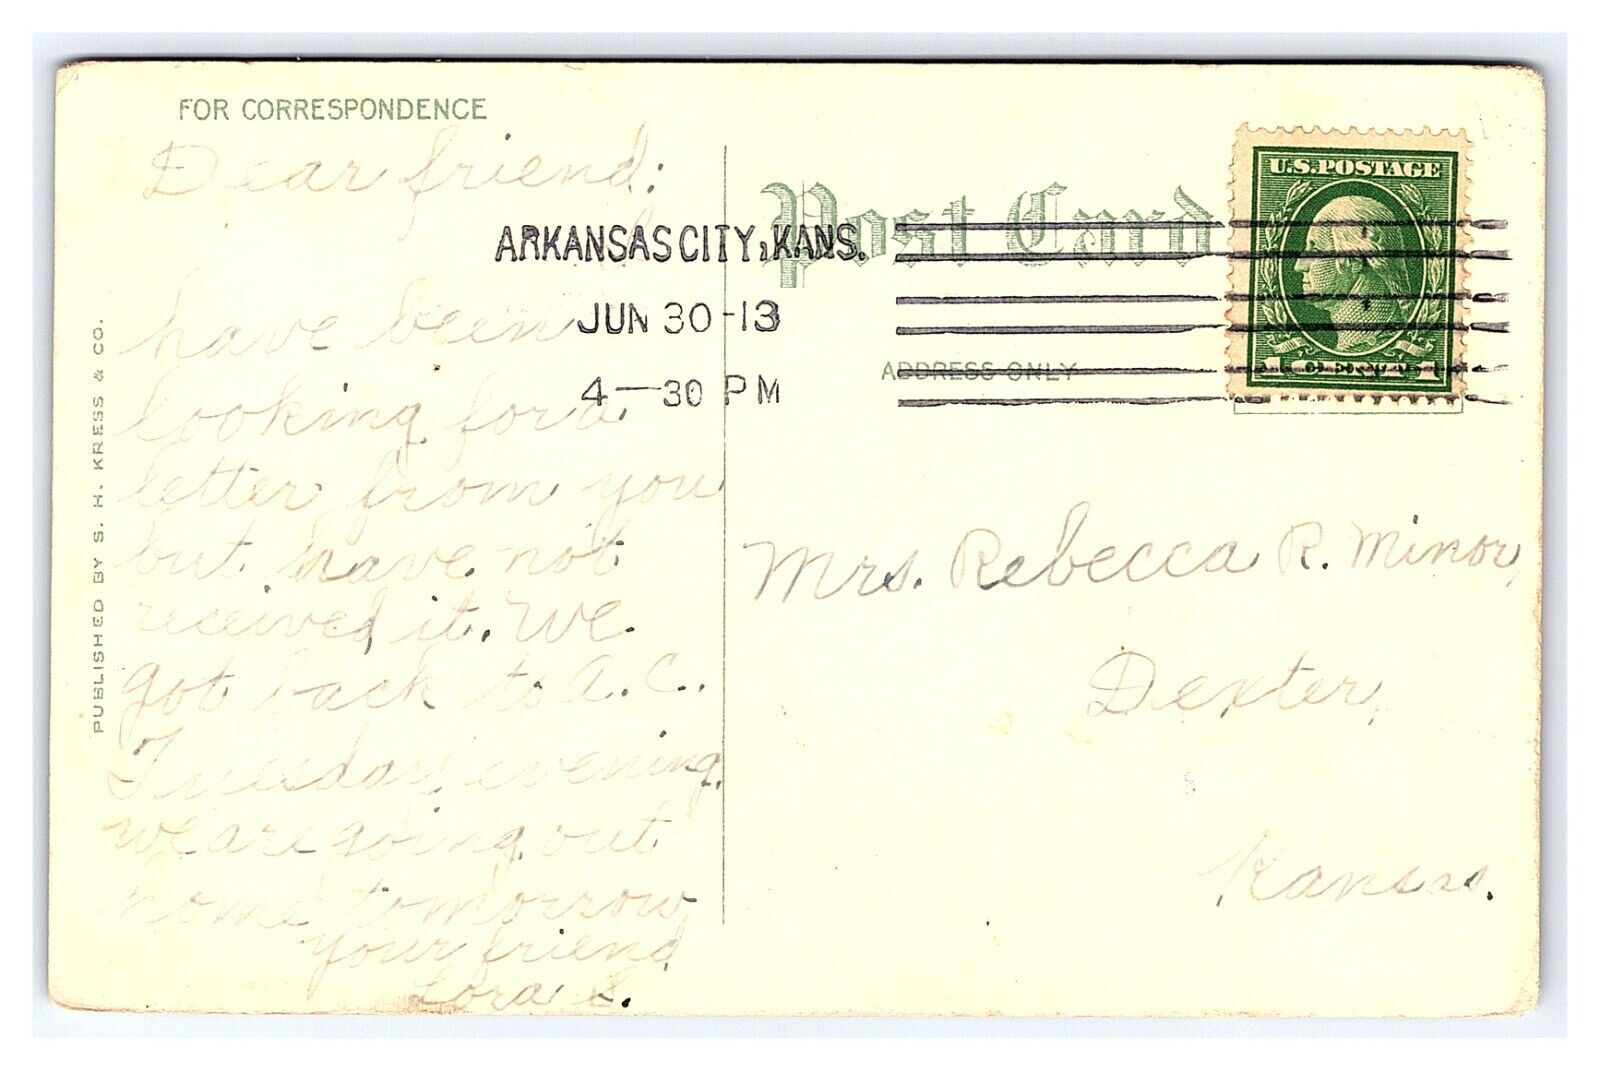 FOR CORRESPONDENCE
Dear friend:
I
have been
looking for a
letter from you
but have not
received it. We
got back to A.C.
Tuesday evening.
We are going out
home tomorrow
your friend
Lora S.
PUBLISHED BY S. H. KRESS & CO.
Post Card
ARKANSAS CITY, KANS.
JUN 30-13
4—30 PM
ADDRESS ONLY
U.S. POSTAGE
1 CENT 1
Mrs. Rebecca R. Minor,
Dexter,
Kansas.